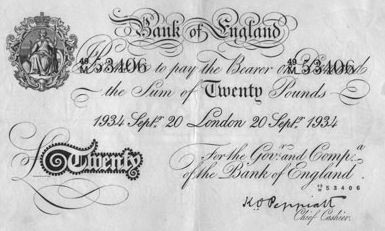 Bank of England
49/M 53406 Promise to pay the Bearer on Demand 49/M 53406
the Sum of Twenty Pounds
1934 Septr. 20 London 20 Septr. 1934
For the Govr. and Compa.
£ Twenty of the Bank of England
49/M 53406
K O Peppiatt
Chief Cashier.